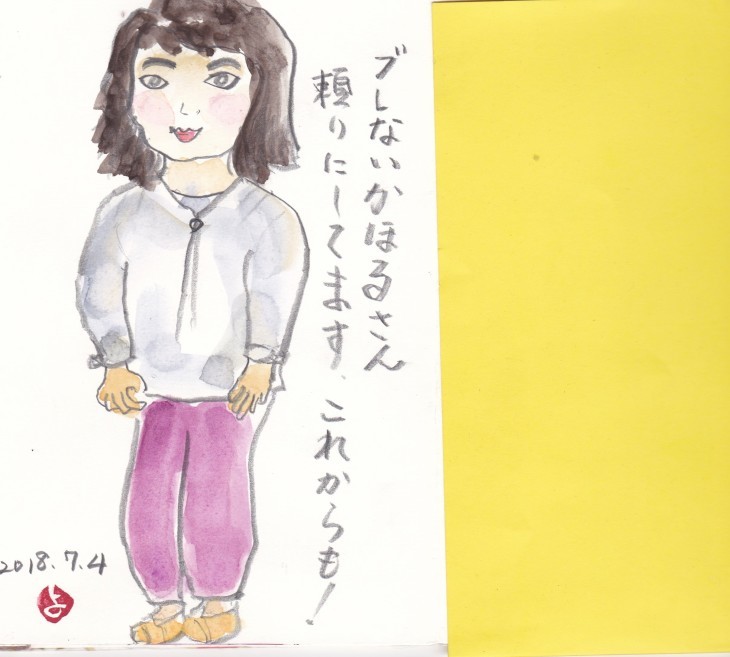 ブレないかほるさん
頼りにしてます、これからも!
2018.7.4
よ